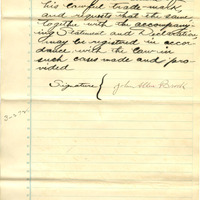 his lawful trade-mark
and requests that the same
together with the accompany-
ing Statement and Declaration,
may be registered in accor-
dance with the law in
such cases made and pro-
vided
Signature { John Allen